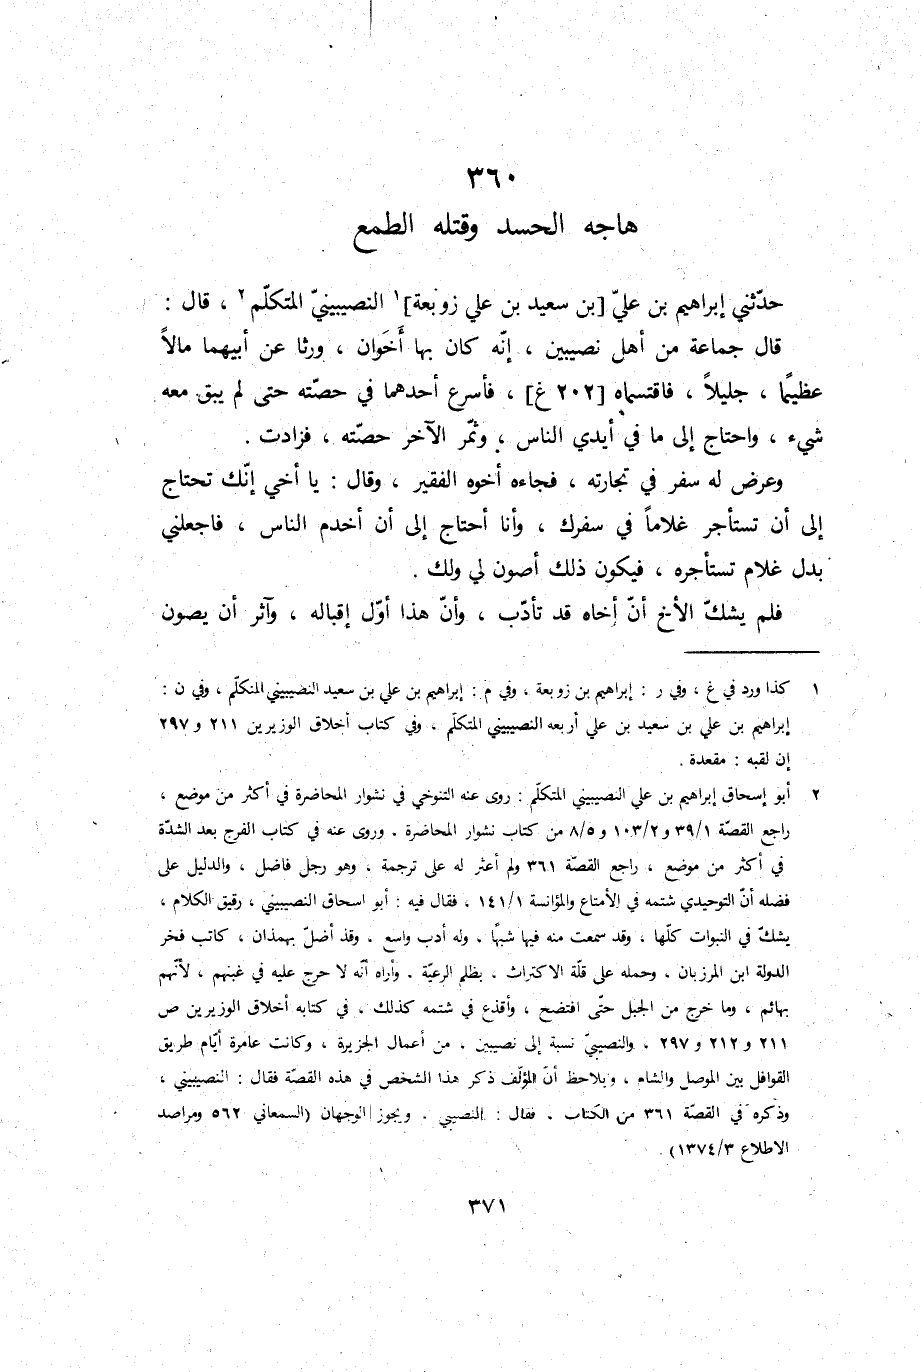 ٣٦٠
هاجه الحسد وقتله الطمع
حدّثني إبراهيم بن عليّ [بن سعيد بن علي زوبعة]١ النصيبينيّ المتكلّم٢ ، قال :
قال جماعة من أهل نصيبين ، إنّه كان بها أَخَوان ، ورثا عن أبيهما مالاً
عظيمًا ، جليلاً ، فاقتسماه [٢٠٢ غ] ، فأسرع أحدهما في حصّته حتى لم يبق معه
شيء ، واحتاج إلى ما في أيدي الناس ، وثمّر الآخر حصّته ، فزادت .
وعرض له سفر في تجارته ، فجاءه أخوه الفقير ، وقال : يا أخي إنّك تحتاج
إلى أن تستأجر غلاماً في سفرك ، وأنا أحتاج إلى أن أخدم الناس ، فاجعلني
بدل غلام تستأجره ، فيكون ذلك أصون لي ولك .
فلم يشكّ الأخ أنّ أخاه قد تأدّب ، وأنّ هذا أوّل إقباله ، وآثر أن يصون
١ كذا ورد في غ ، وفي ر : إبراهيم بن زوبعة ، وفي م : إبراهيم بن علي بن سعيد النصيبيني المتكلّم ، وفي ن :
إبراهيم بن علي بن سعيد بن علي أربعه النصيبيني المتكلّم ، وفي كتاب أخلاق الوزيرين ٢١١ و ٢٩٧
إن لقبه : مقعدة .
٢ أبو إسحاق إبراهيم بن علي النصيبيني المتكلّم : روى عنه التنوخي في نشوار المحاضرة في أكثر من موضع ،
راجع القصّة ٣٩/١ و ١٠٣/٢ و ٨/٥ من كتاب نشوار المحاضرة . وروى عنه في كتاب الفرج بعد الشدّة
في أكثر من موضع ، راجع القصّة ٣٦١ ولم أعثر له على ترجمة ، وهو رجل فاضل ، والدليل على
فضله أنّ التوحيدي شتمه في الأمتاع والمؤانسة ١٤١/١ ، فقال فيه : أبو اسحاق النصيبيني ، رقيق الكلام ،
يشكّ في النبوات كلّها ، وقد سمعت منه فيها شبهًا ، وله أدب واسع . وقد أضلّ بهمذان ، كاتب فخر
الدولة ابن المرزبان . وحمله على قلّة الاكتراث ، بظلم الرعيّة . وأراه أنّه لا حرج عليه في غبنهم ، لأنّهم
بهائم ، وما خرج من الجبل حتّى افتضح ، وأقذع في شتمه كذلك ، في كتابه أخلاق الوزيرين ص
٢١١ و ٢١٢ و ٢٩٧ ، والنصيبيّ نسبة إلى نصيبين ، من أعمال الجزيرة ، وكانت عامرة أيّام طريق
القوافل بين الموصل والشام ، ويلاحظ أنّ المؤلّف ذكر هذا الشخص في هذه القصّة فقال : النصيبيني ،
وذكره في القصّة ٣٦١ من الكتاب . فقال : النصيبي . ويجوز الوجهان (السمعاني ٥٦٢ ومراصد
الاطلاع ١٣٧٤/٣) .
٣٧١